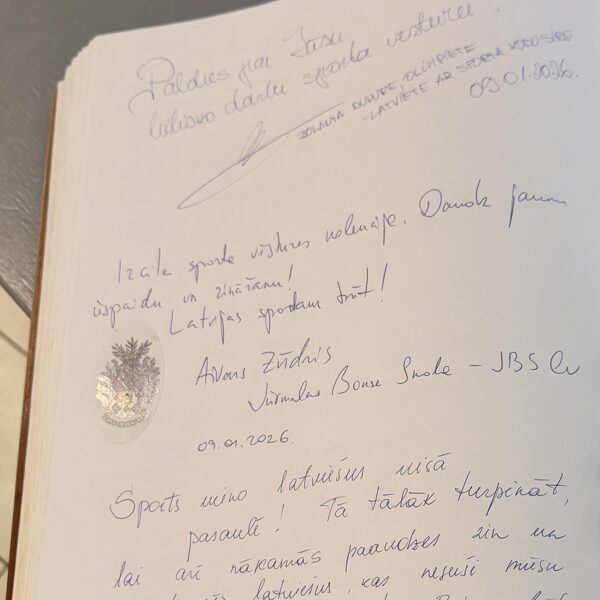 Paldies par Jūsu
lielisko darbu sporta vēsturē.
OLIMPIETE
- LATVIETE AR SPORTA
09.01.2026.
Izcila sporta vēstures kolekcija. Daudz jaunu
iespaidu un zināšanu!
Latvijas sportam būt!
Aivars Zūdris
Jūrmalas Boksa Skola – JBS.lv
09.01.2026.
Sports vieno latviešus visā
pasaulē! Tā tālāk turpināt,
lai arī nākamās paaudzes zin un
latviešus, kas nesuši mūsu